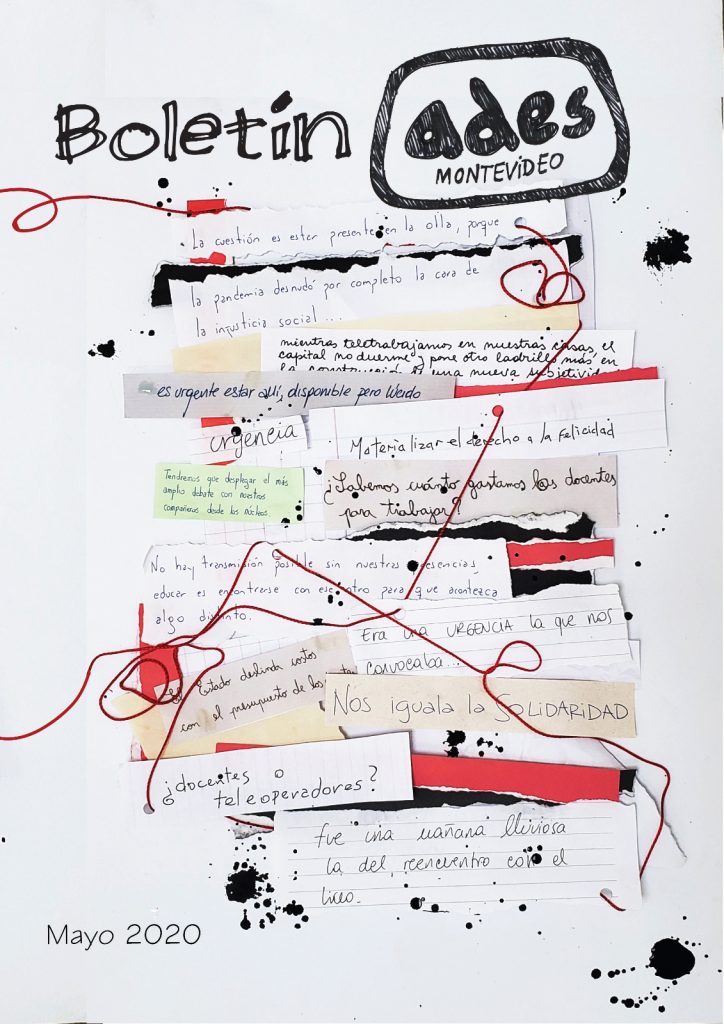 Boletín
ades
MONTEVIDEO
La cuestión es estar presente en la olla, porque
la pandemia desnudó por completo la cara de
la injusticia social...
mientras teletrabajamos en nuestras casas, el
capital no duerme y pone otro ladrillo más, en
la construcción de una nueva subjetividad
es urgente estar aquí, disponible pero
urgencia
Materializar el derecho a la Felicidad
Tendremos que desplegar el más
amplio debate con nuestros
compañeros desde los núcleos.
¿Sabemos cuánto gastamos los docentes
para trabajar?
No hay transmisión posible sin nuestras presencias,
educar es encontrarse con ese otro para que acontezca
algo distinto.
Era una URGENCIA la que nos
convocaba...
El Estado deslinda costos
con el presupuesto de los
Nos iguala la SOLIDARIDAD
¿docentes o
teleoperadores?
fue una mañana lluviosa
la del reencuentro con el
liceo.
Mayo 2020